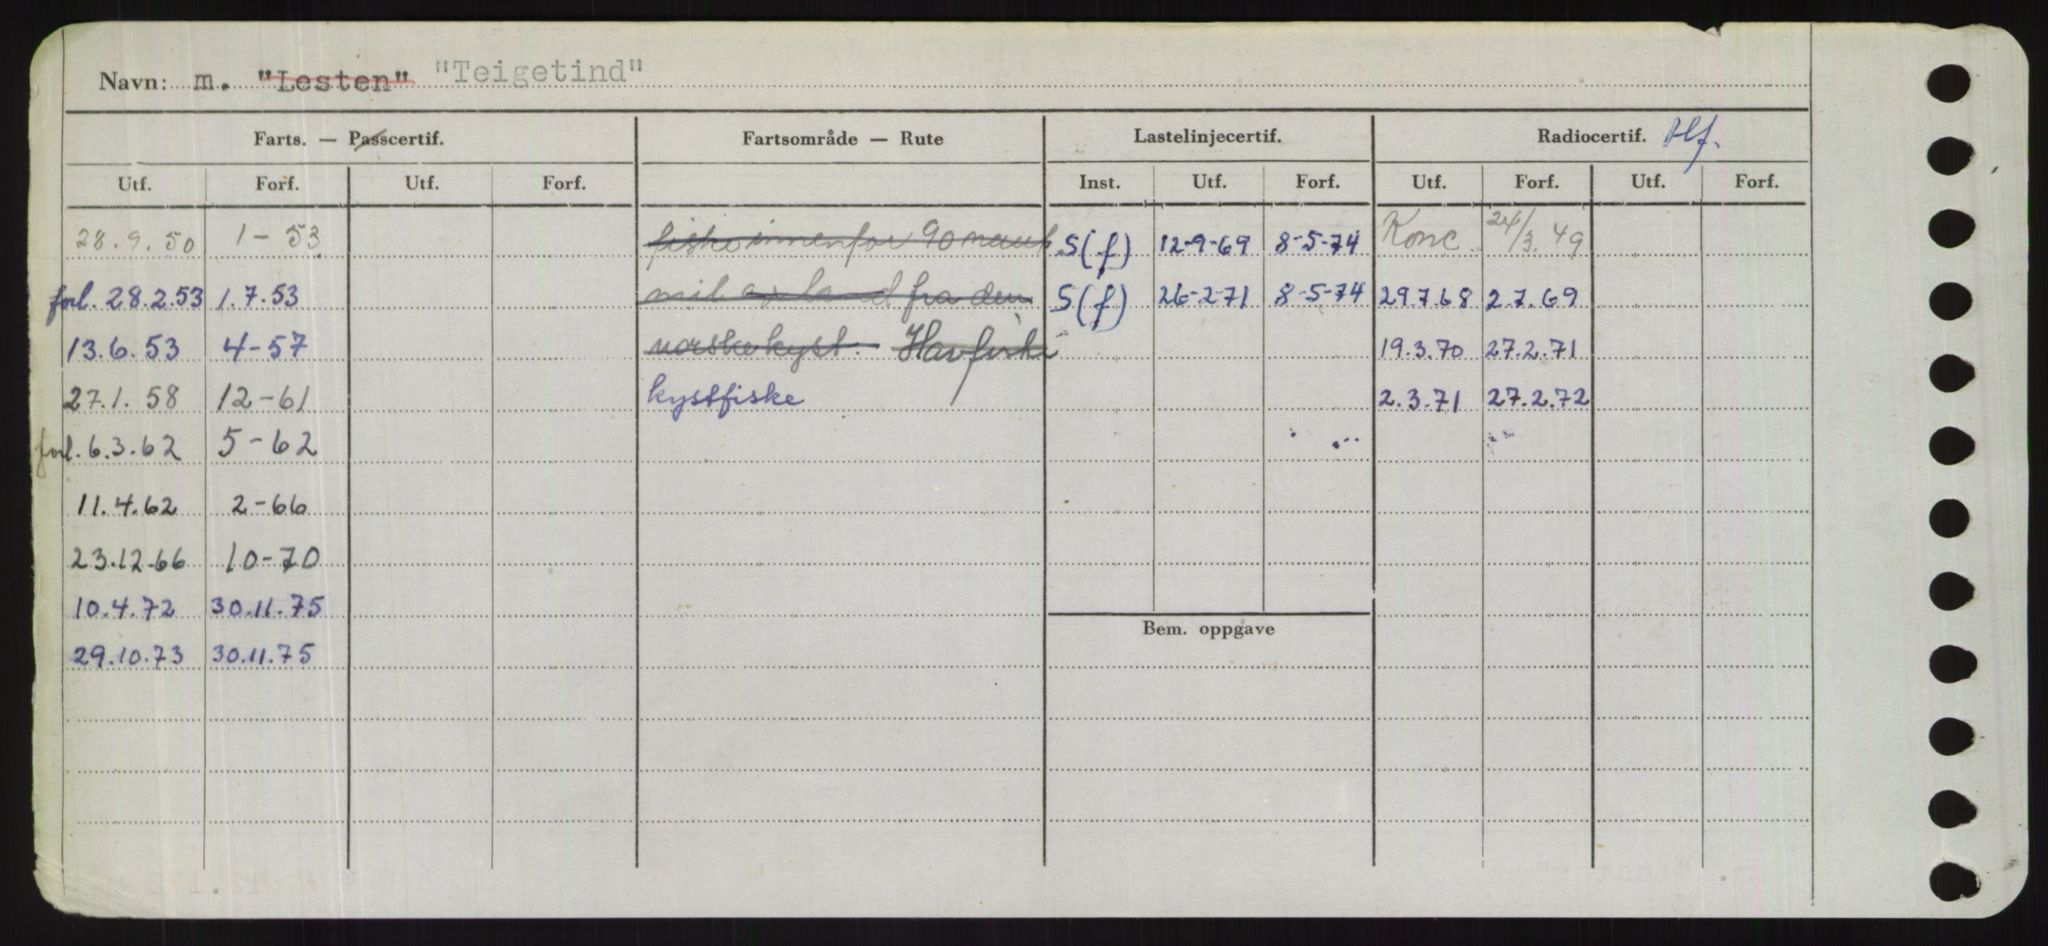 Navn: m. "Lesten" "Teigetind"
Farts. — Passcertif. Fartsområde — Rute Lastelinjecertif. Radiocertif. Tlf.
Utf. Forf. Utf. Forf. Inst. Utf. Forf. Utf. Forf. Utf. Forf.
28.9.50 1-53 fiske innenfor 90 naut S(f) 12-9-69 8-5-74 Konc. 26/3.49
forl. 28.2.53 1.7.53 mil av land fra den S(f) 26-2-71 8-5-74 29.7.68 2.7.69
13.6.53 4-57 norske kyst. Havfiske 19.3.70 27.2.71
27.1.58 12-61 kystfiske 2.3.71 27.2.72
forl. 6.3.62 5-62
11.4.62 2-66
23.12.66 10-70
10.4.72 30.11.75
Bem. oppgave
29.10.73 30.11.75